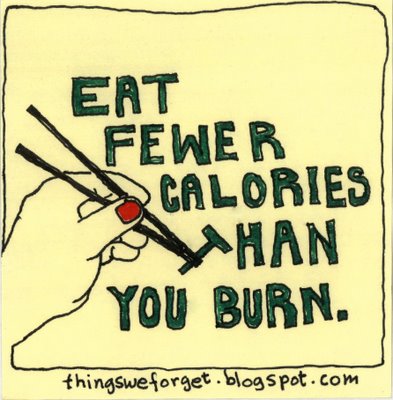 EAT
FEWER
CALORIES
THAN
YOU BURN.
thingsweforget.blogspot.com